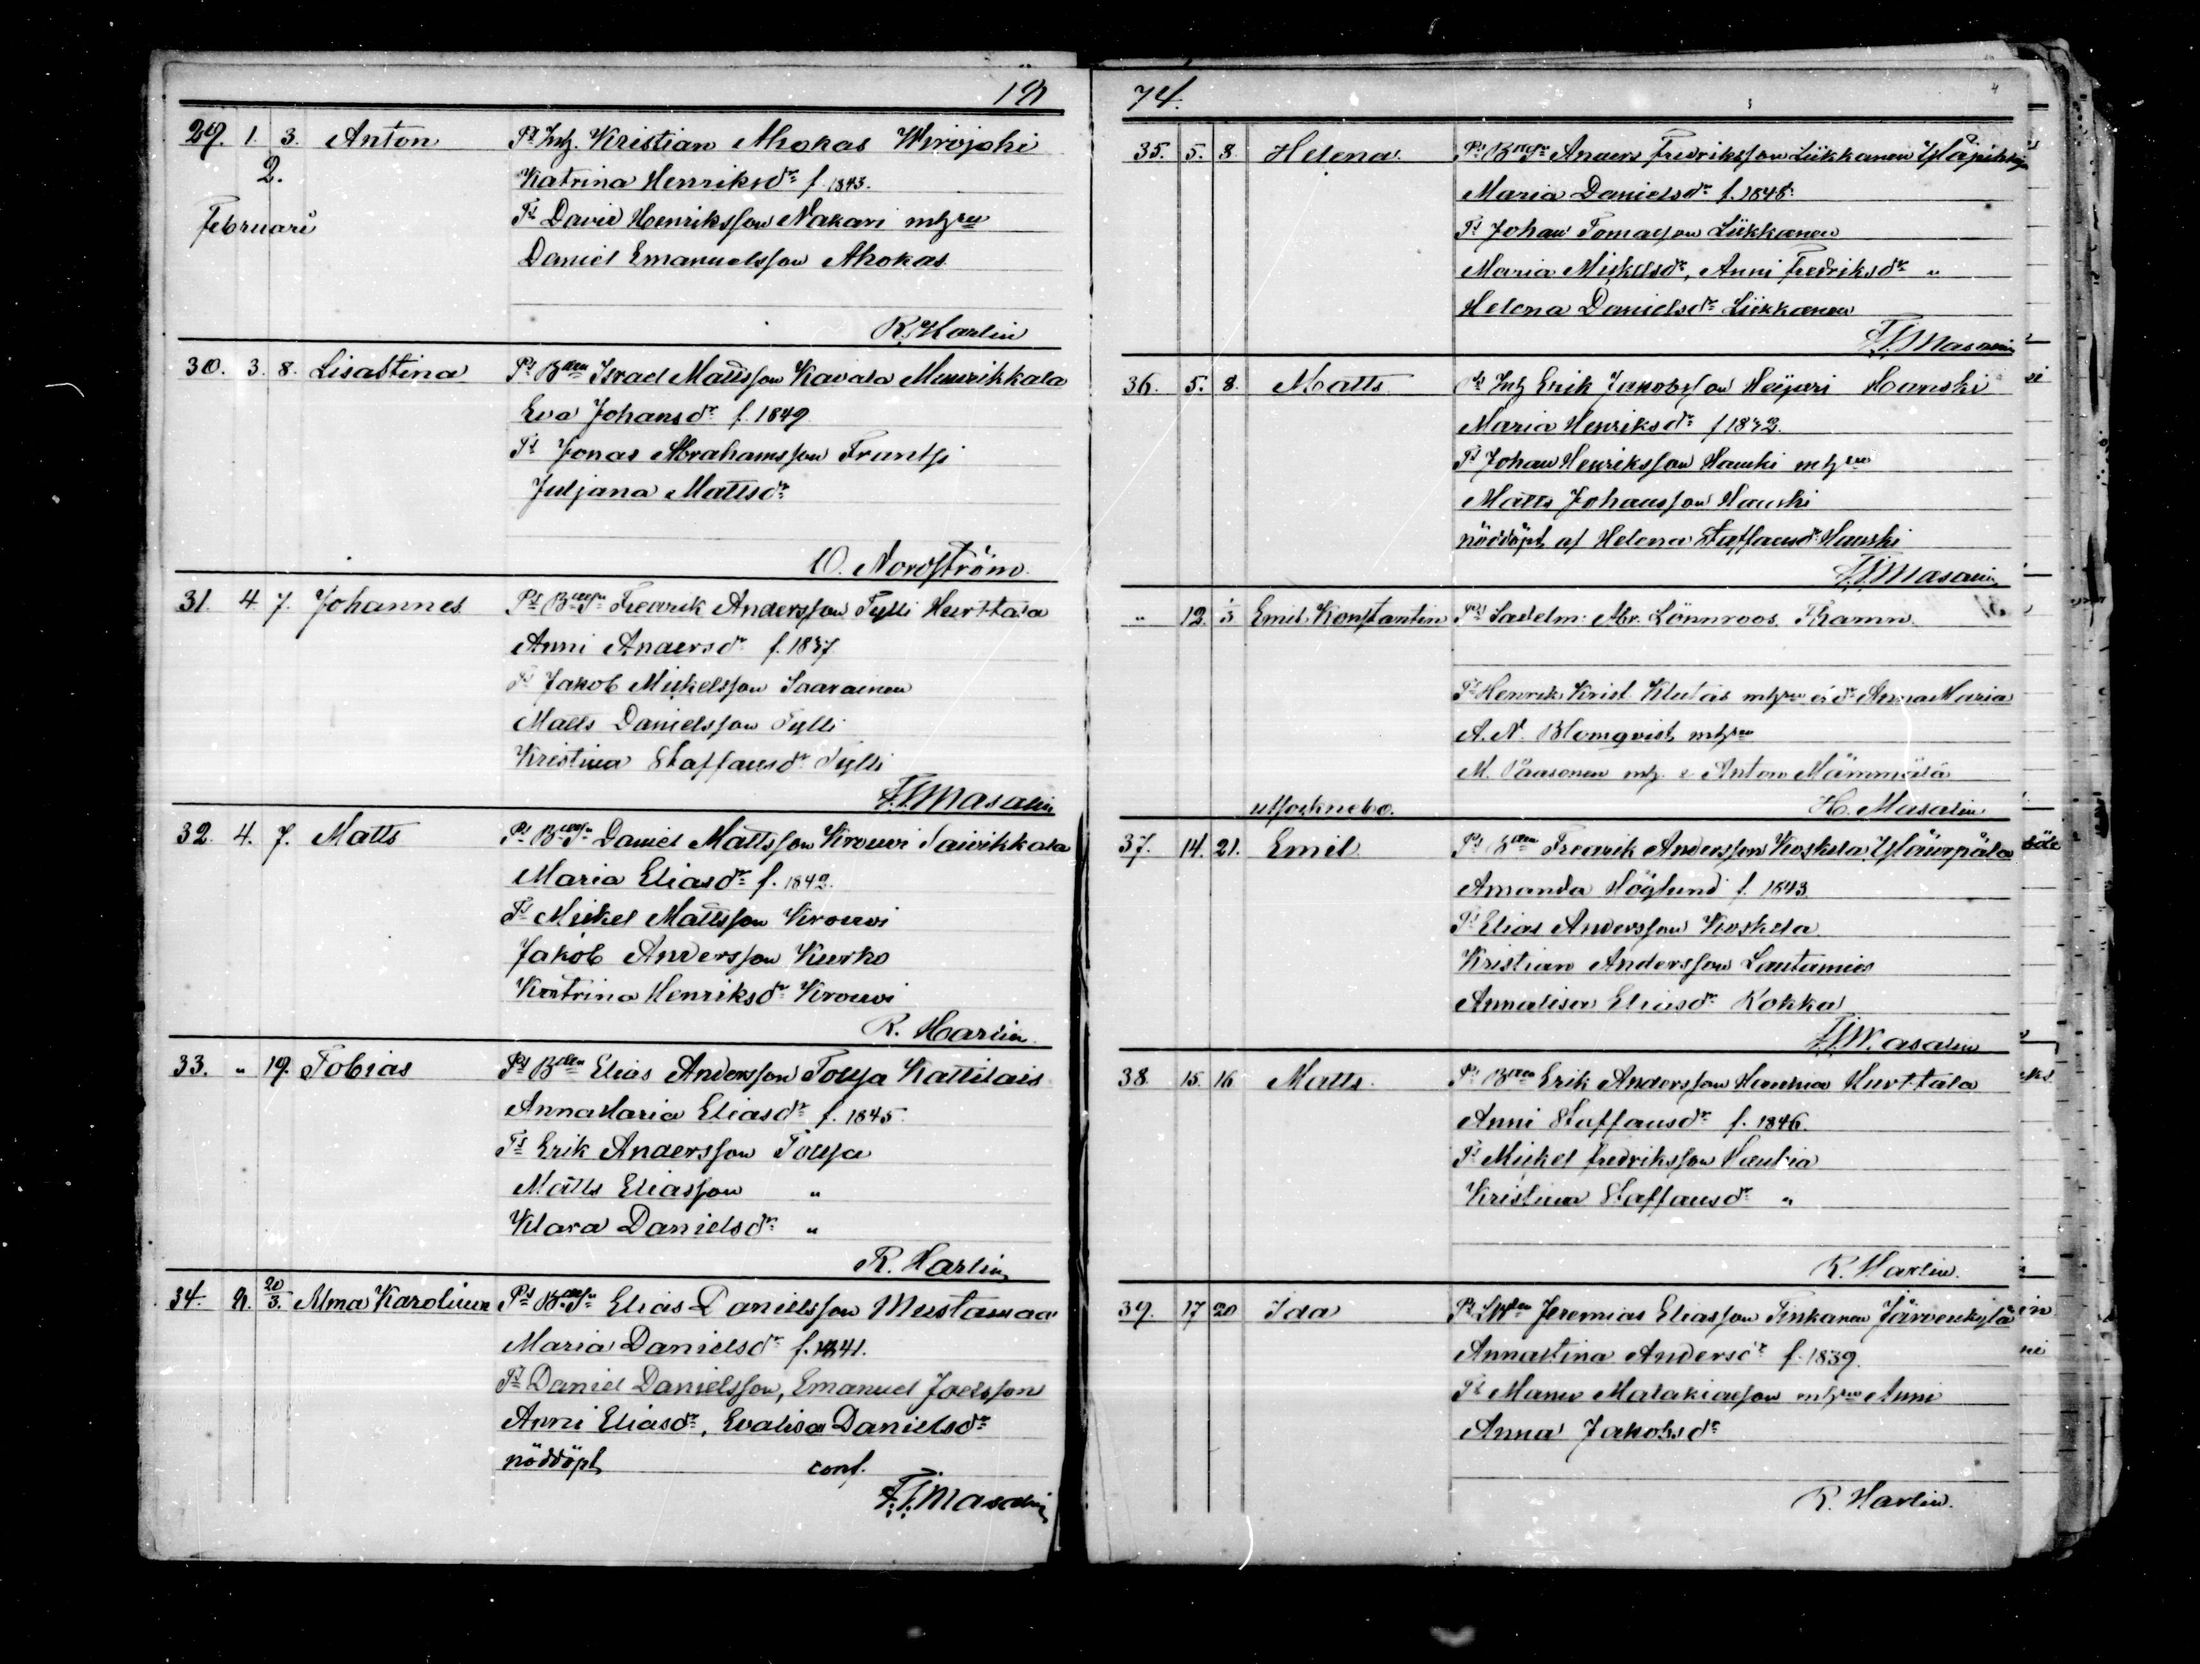 18
29. 1. 3. Anton Ps Inh. Kristian Ahokas Wirojoki
2. Katrina Henriksdr f. 1843.
Februari Ts David Henriksson Nakari mh
Daniel Emanuelsson Ahokas
R. Harlin
30. 3. 8. Lisastina Ps Israel Mattsson Kavala Muurikkala
Eva Johansdr f. 1849
Ts Jonas Abrahamsson Frantsi
Juljana Mattsdr
O. Nordström.
31. 4. 7. Johannes Ps Fredrik Andersson Tylli Hurttala
Anni Andersdr f. 1837
Ts Jakob Mickelsson Saarainen
Matts Danielsson Tylli
Kristina Staffansdr Tylli
F. F. Masalin
32. 4. 7. Matts Ps Daniel Mattsson Krouvi Saivikkala
Maria Eliasdr f. 1842.
Ts Mickel Mattsson Krouvi
Jakob Andersson Kurko
Katrina Henriksdr Krouvi
R. Harlin.
33. " 19. Tobias Ps Elias Andersson Tousa Kattilais
Anna Maria Eliasdr f. 1845.
Ts Erik Andersson Tousa
Matts Eliasson "
Klara Danielsdr "
R. Harlin
34. 20/3. Alma Karolina Ps Elias Danielsson Mustamaa
Maria Danielsdr f. 1841.
Ts Daniel Danielsson, Emanuel Joelsson
Anni Eliasdr, Evalisa Danielsdr
nöddöpt conf.
F. F. Masalin
74.
35. 5. 8. Helena Ps Anders Fredriksson Liikkanen
Maria Danielsdr f. 1848.
Ts Johan Tomasson Liikkanen
Maria Mickelsdr, Anni Fredriksdr "
Helena Danielsdr Liikkanen
F. F. Masalin
36. 5. 8. Matts Ps Inh Erik Jakobsson Heijari Hanski
Maria Henriksdr f 1832.
Ts Johan Henriksson Hanski mh
Matts Johansson Hanski
nöddöpt af Helena Staffansdr Hanski
F. F. Masalin
" 12. Emil Konstantin Ps Sadelm: Ab. Lönnroos. Fhamn.
Ts Henrik Krist. Klutas o. dr Anna Maria
A. N. Blomqvist
M. Paasonen mh. o Anton Mämmälä
utsocknebo. H. Masalin
37. 14. 21. Emil Ps Fredrik Andersson Koskela
Amanda Höglund f. 1843
Ts Elias Andersson Koskela
Kristian Andersson Lautamies
Annalisa Eliasdr Kokka
F. F. Masalin
38. 15. 16 Matts Ps Erik Andersson Haukia Hurttala
Anni Staffansdr f. 1846.
Ts Mickel Fredriksson Haukia
Kristina Staffansdr "
R. Harlin.
39. 17 20 Ida Ps Jeremias Eliasson Tinkanen Järvenkylä
Annastina Andersdr f. 1839.
Ts Manu Malakiasson Anni
Anna Jakobsdr
R. Harlin.